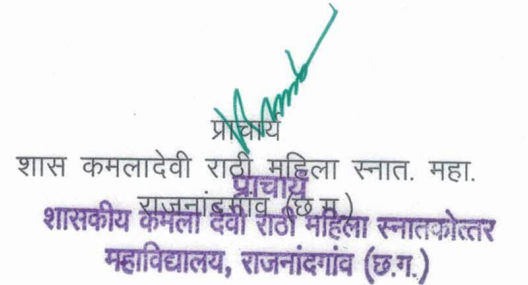 प्राचार्य
शास कमलादेवी राठी महिला स्नात. महा.
राजनांदगांव (छ.ग.)
प्राचार्य
शासकीय कमला देवी राठी महिला स्नातकोत्तर
महाविद्यालय, राजनांदगांव (छ.ग.)